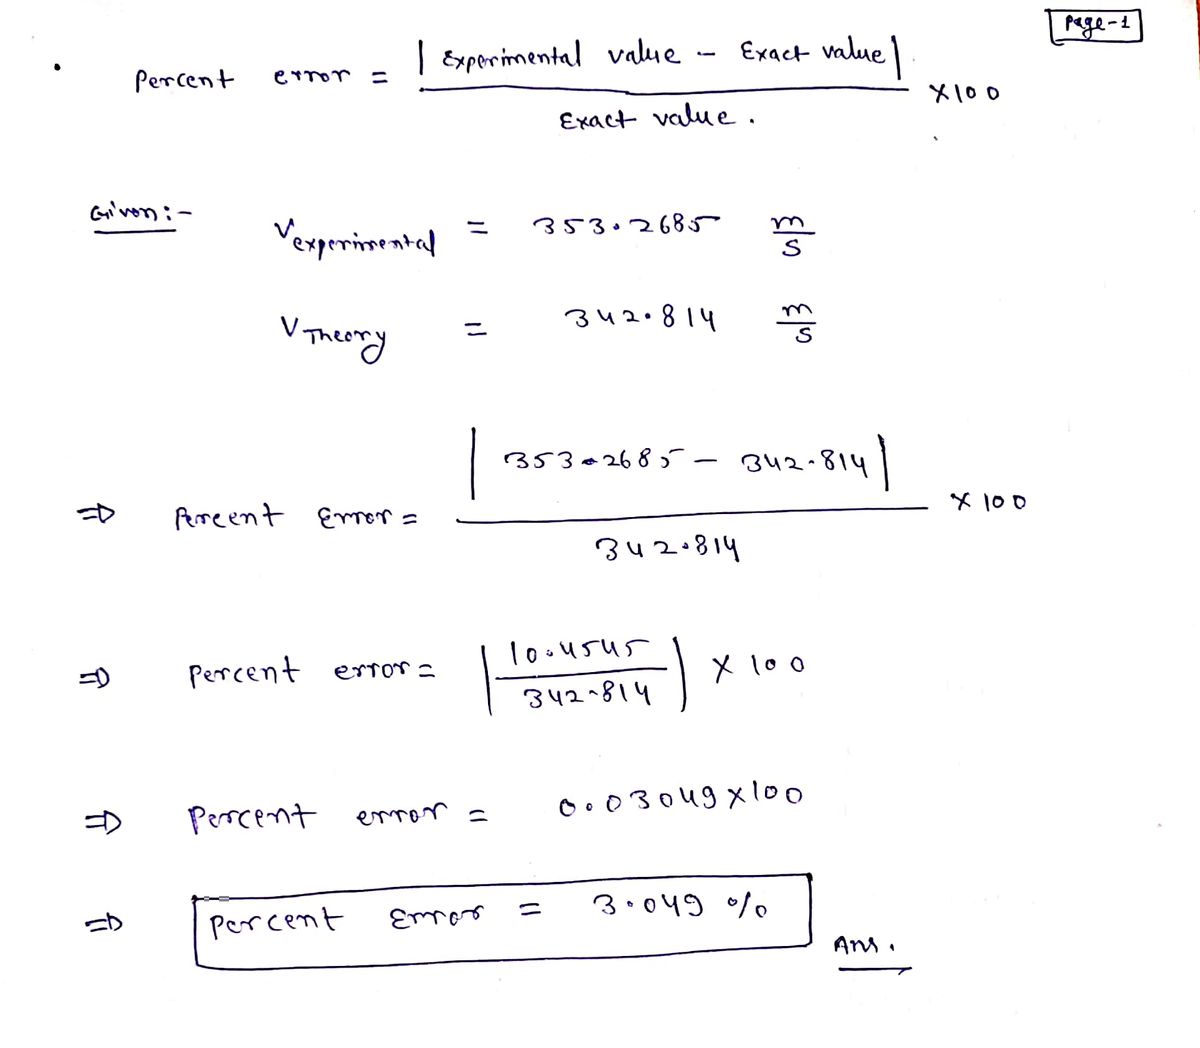 Page-1
Percent error = | Experimental value - Exact value | / Exact value. × 100
Given :-
Vexperimental = 353.2685 m/s
VTheory = 342.814 m/s
⇒ Percent Error = | 353.2685 - 342.814 | / 342.814 × 100
⇒ Percent error = | 10.4545 / 342.814 | × 100
⇒ Percent error = 0.03049 × 100
⇒ Percent Error = 3.049 %
Ans.